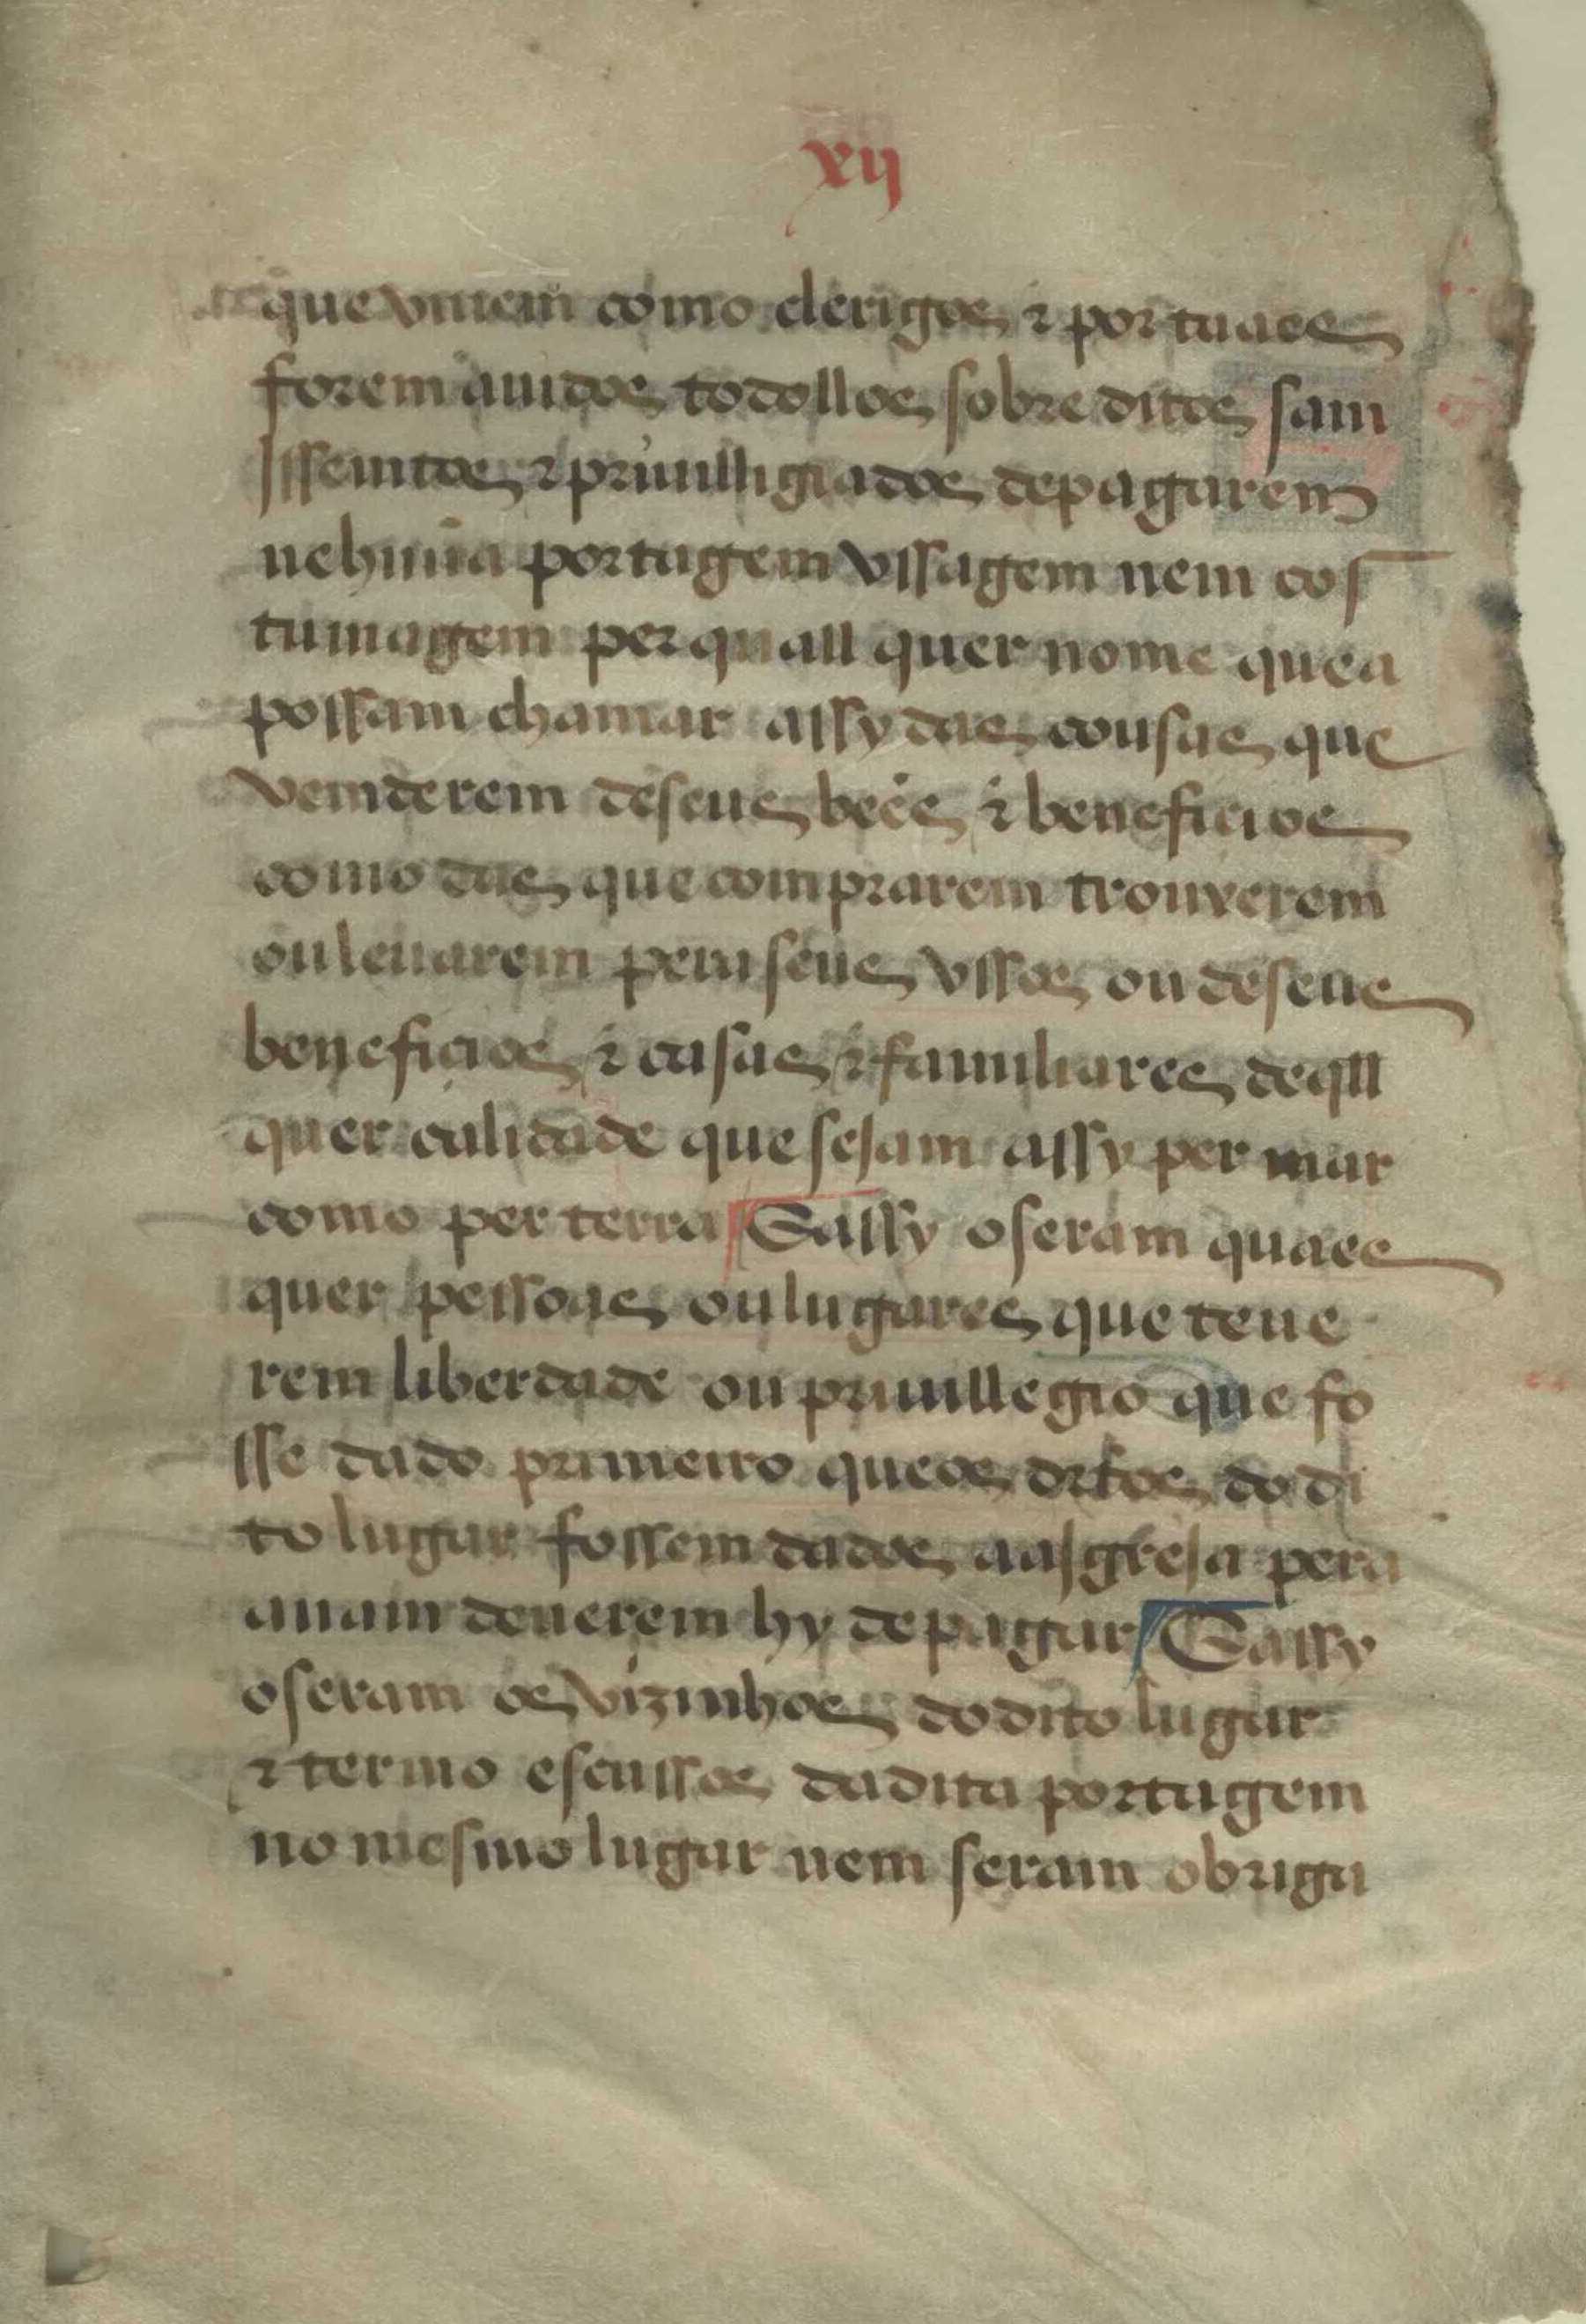 xij
que viuem como clerigos ⁊ por taaes
forem auidos todollos sobre ditos sam
Jssemtos ⁊ priuilligiados depagarem
nehuũa portagem vssagem nem cos
tumagem per quall quer nome quea
possam chamar assy das cousas que
vemderem deseus beẽs ⁊ beneficios
como das que comprarem trouxerem
ou leuarem pera seus vssos ou deseus
beneficios ⁊ casas ⁊ familiares de qll
quer calidade que seJam assy per mar
como per terra E assy oseram quaees
quer pessoas ou lugares que teue
rem liberdade ou priuillegio que fo
sse dado primeiro queos drẗos do di
to lugar fossem dados aaJgreJa pera
auam deuerem hy de pagar E assy
oseram os vizinhos dodito lugar
⁊ termo escussos dadita portagem
no mesmo lugar nem seram obriga